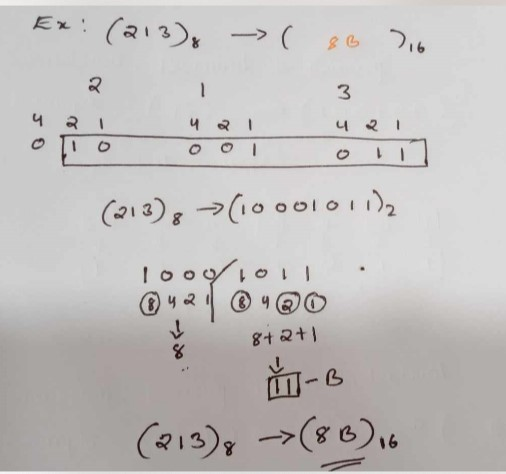 Ex: (213)₈ → ( 8B )₁₆
2 1 3
4 2 1 4 2 1 4 2 1
0 1 0 0 0 1 0 1 1
(213)₈ → (10001011)₂
1 0 0 0 / 1 0 1 1
8 4 2 1 | 8 4 2 1
↓ 8+2+1
8 ↓
11 - B
(213)₈ → (8B)₁₆